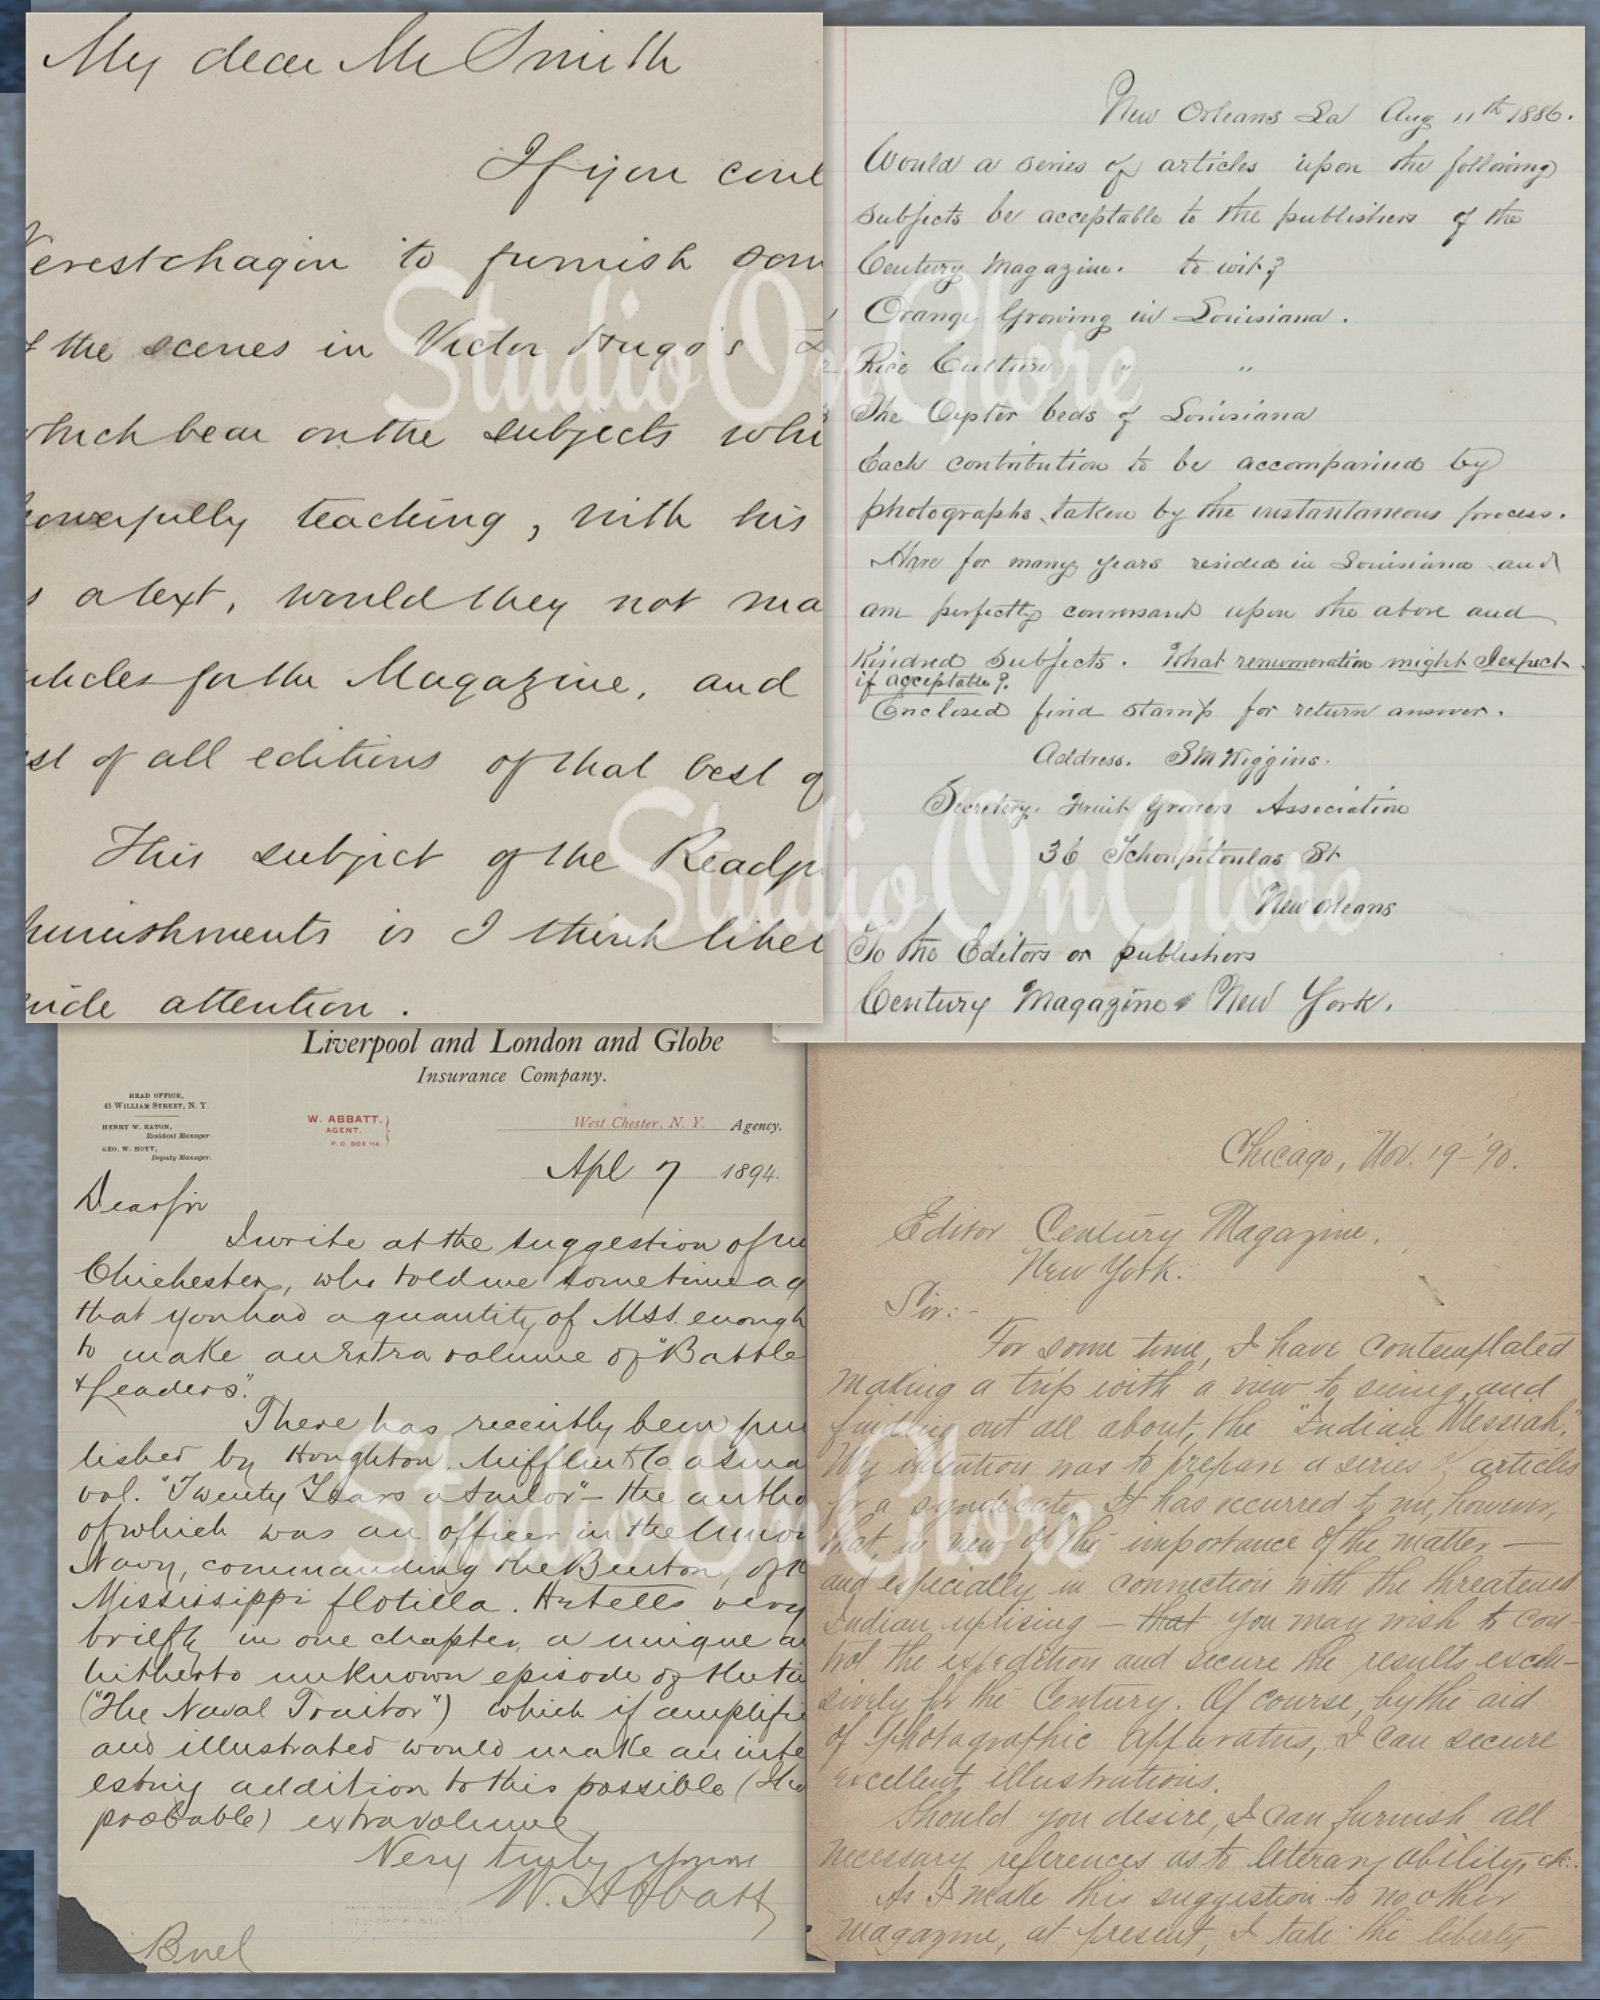 My dear Mr Smith
If you
Verestchagin to furnish
the scenes in Victor Hugo's
which bear on the subjects
powerfully teaching, with his
a text, would they not
articles for the Magazine, and
of all editions of that best
This subject of the
punishments is I think
wide attention.
New Orleans La Aug 11th 1886.
Would a series of articles upon the following
subjects be acceptable to the publishers of the
Century Magazine. to wit?
1 Orange Growing in Louisiana.
2 Rice Culture " "
3 The Oyster beds of Louisiana
Each contribution to be accompanied by
photographs, taken by the instantaneous process.
Have for many years resided in Louisiana and
am perfectly conversant upon the above and
Kindred Subjects. What renumeration might I expect
if acceptable?
Enclosed find stamp for return answer.
Address. S M Wiggins.
Secretery. Fruit Growers Association
36 Tchoupitoulas St
New Orleans
To the Editors or publishers
Century Magazine New York.
Liverpool and London and Globe
Insurance Company.
HEAD OFFICE,
45 WILLIAM STREET, N. Y.
HENRY W. EATON,
Resident Manager
GEO. W. HOYT,
Deputy Manager.
W. ABBATT,
AGENT.
P. O. BOX 114.
West Chester, N. Y. Agency.
Apl 7 1894.
Dear Sir
I write at the suggestion of
Chichester, who told me sometime
that you had a quantity of MSS. enough
to make an Extra volume of "Battle
& Leaders".
There has recently been
lished by Houghton Mifflin & Co
vol. "Twenty Years a Sailor" - the
of which was an officer in the
Navy, commanding the Benton,
Mississippi flotilla. He tells very
briefly in one chapter, a unique
hitherto unknown episode of the
("The Naval Traitor") which if
and illustrated would make an
esting addition to this possible
probable) extra volume
Very truly yours
W. Abbatt
Buel
Chicago, Nov. 19-'90.
Editor Century Magazine,
New York.
Sir:-
For some time, I have contemplated
making a trip with a view to seeing, and
finding out all about, the "Indian Messiah."
My intention was to prepare a series of articles
for a syndicate. It has occurred to me, however,
that, in view of the importance of the matter —
and especially in connection with the threatened
Indian uprising — that you may wish to con-
trol the expedition and secure the results exclu-
sively for the Century. Of course, by the aid
of photographic apparatus, I can secure
excellent illustrations.
Should you desire, I can furnish all
necessary references as to literary ability, etc.
As I make this suggestion to no other
magazine, at present, I take the liberty
StudioOnGlore
StudioOnGlore
StudioOnGlore